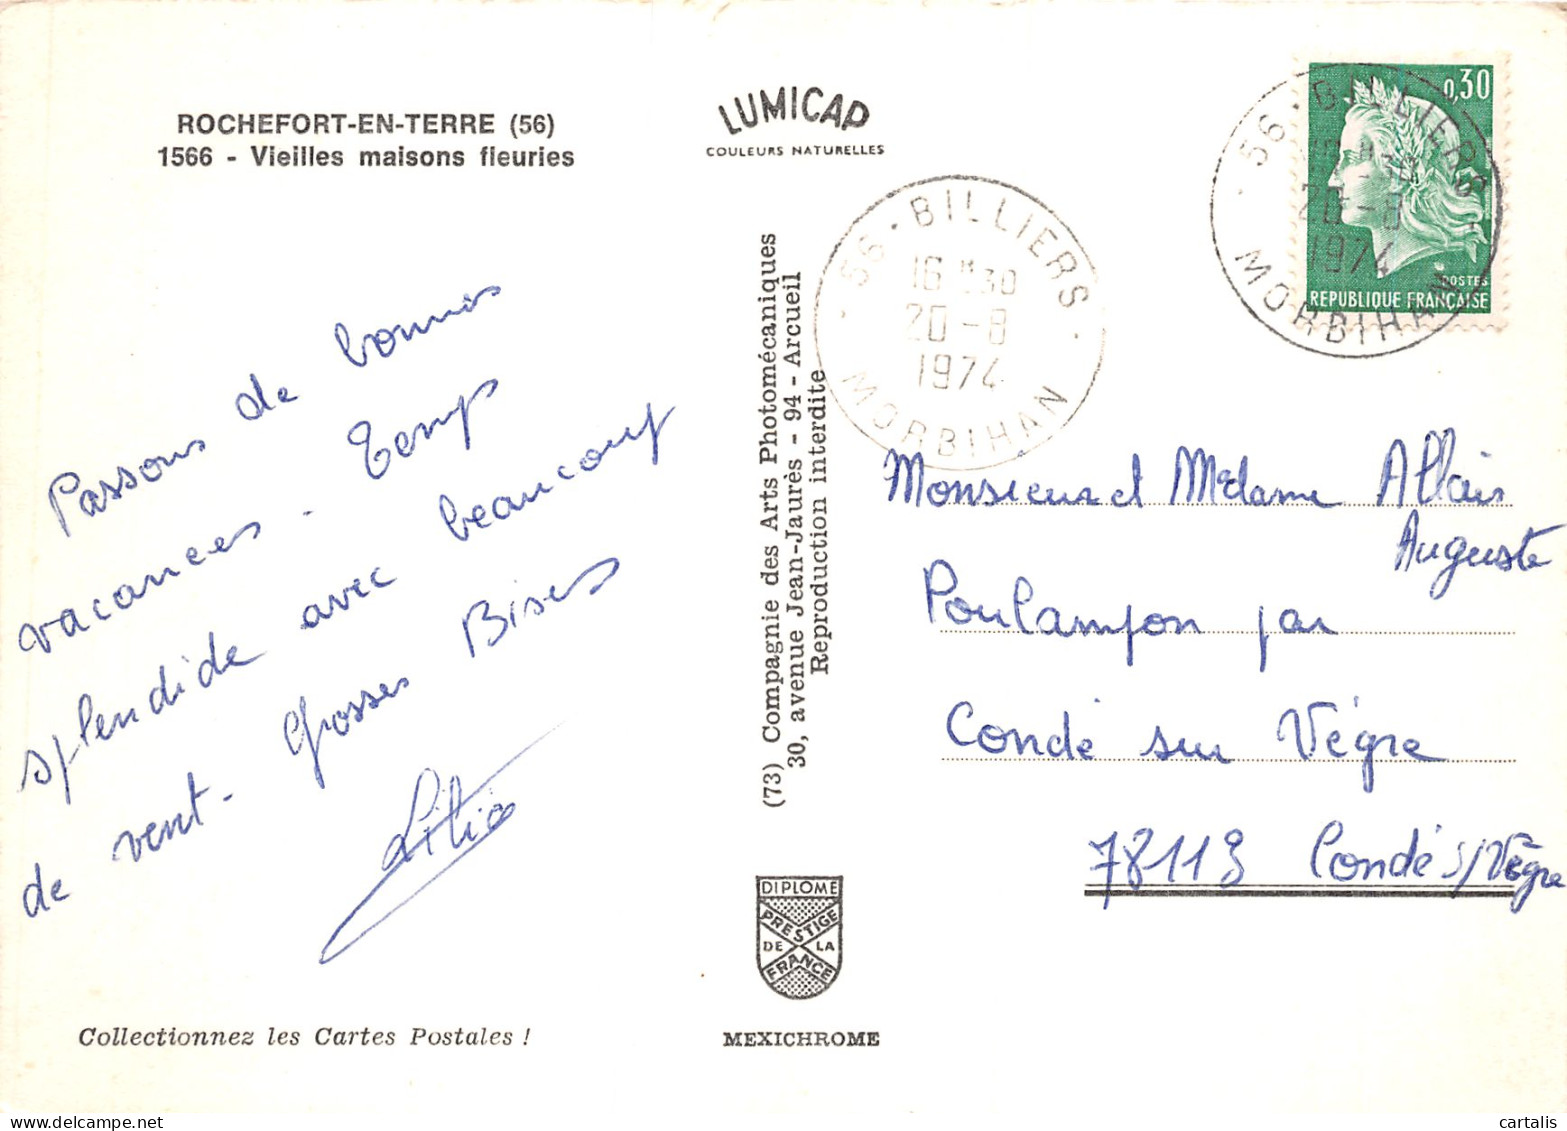 ROCHEFORT-EN-TERRE (56)
1566 - Vieilles maisons fleuries
LUMICAP
COULEURS NATURELLES
Passons de bonnes
vacances - Temps
splendide avec beaucoup
de vent - Grosses Bises
(73) Compagnie des Arts Photomécaniques
30, avenue Jean-Jaurès - 94 - Arcueil
Reproduction interdite
56 - BILLIERS
16 H 30
20 - 8
1974
MORBIHAN
56 - BILLIERS
20 - 8
1974
MORBIHAN
0,30
POSTES
REPUBLIQUE FRANCAISE
Monsieur et Madame Allais
Auguste
Poulampon par
Condé sur Vègre
78113 Condé s/Vègre
DIPLOME
PRESTIGE
DE LA
FRANCE
Collectionnez les Cartes Postales !
MEXICHROME
cartalis